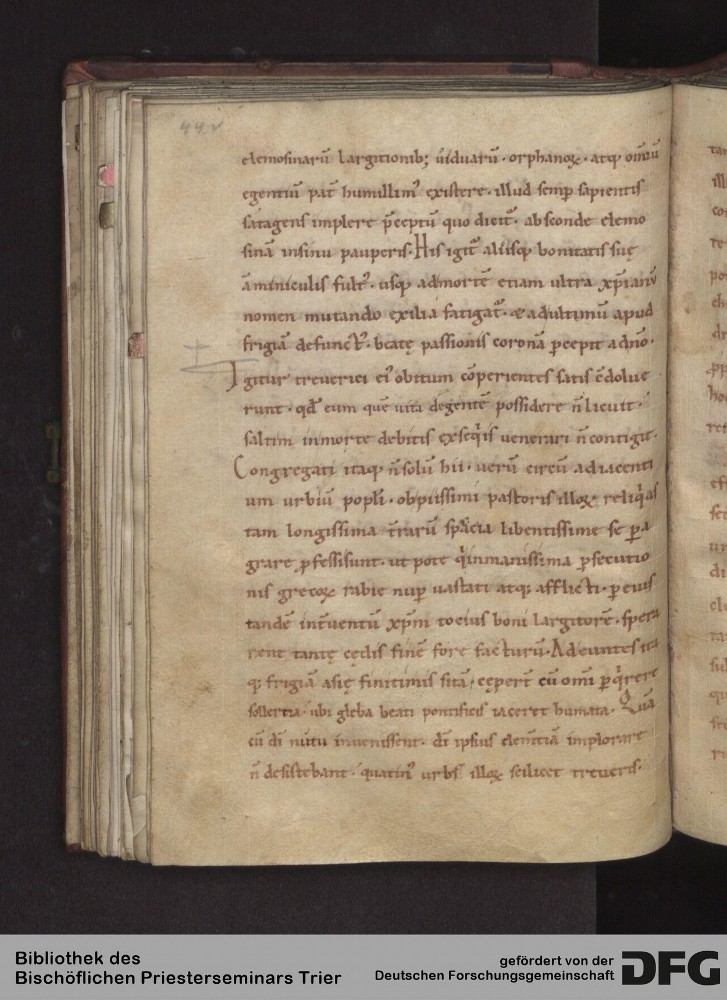 44v
elemosinarū largitionib; uiduarū· orphanoꝝ· atq; omīū
egentiū pat̄ humillim᷒ existere· illud semꝑ sapientis
satagens implere p̄ceptū quo dicit᷒· absconde elemo
sinā insinu pauperis· His igit᷒ aliisq; bonitatis suę
āminiculis fult᷒· usq; admortē etiam ultra xp̄ianū
nomen mutando exilia fatigat᷒· & adultimū apud
frigiā defunct᷒· beatę passionis coronā ꝑcepit adn̄o·
Igitur treuerici ei᷒ obitum cōperientes satis c̄dolue
runt· qd̄ eum quē uita degentē possidere n̄ licuit·
saltim inmorte debitis exseq̇is uenerari n̄ contigit·
Congregati itaq; n̄ solū hii· uerū circū adiacenti
um urbiū popl̄i· obpiissimi pastoris illoꝝ reliq̇as
tam longissima t̄rarū spacia libentissime se ꝑa
grare ꝓfessisunt· ut pote q̇inmanissima ꝑsecutio
nis grecoꝝ rabie nuꝑ uastati atq; afflicti· ꝑ eius
tandē int̄uentū xp̄m toeius boni largitorē· spera
rent tantę cędis finē fore facturū· Adeuntes ita
q; frigiā asię finitimis sitā, cęper̄t cū omi ꝑq̇rere
sollertia· ubi gleba beati pontificis iaceret humata· Quā
cū dī nutu inuenissent· dī ipsius clem̄tiā implorare
n̄ desistebant· quatin᷒ urbs illoꝝ scilicet treueris·
Bibliothek des
Bischöflichen Priesterseminars Trier
gefördert von der
Deutschen Forschungsgemeinschaft
DFG